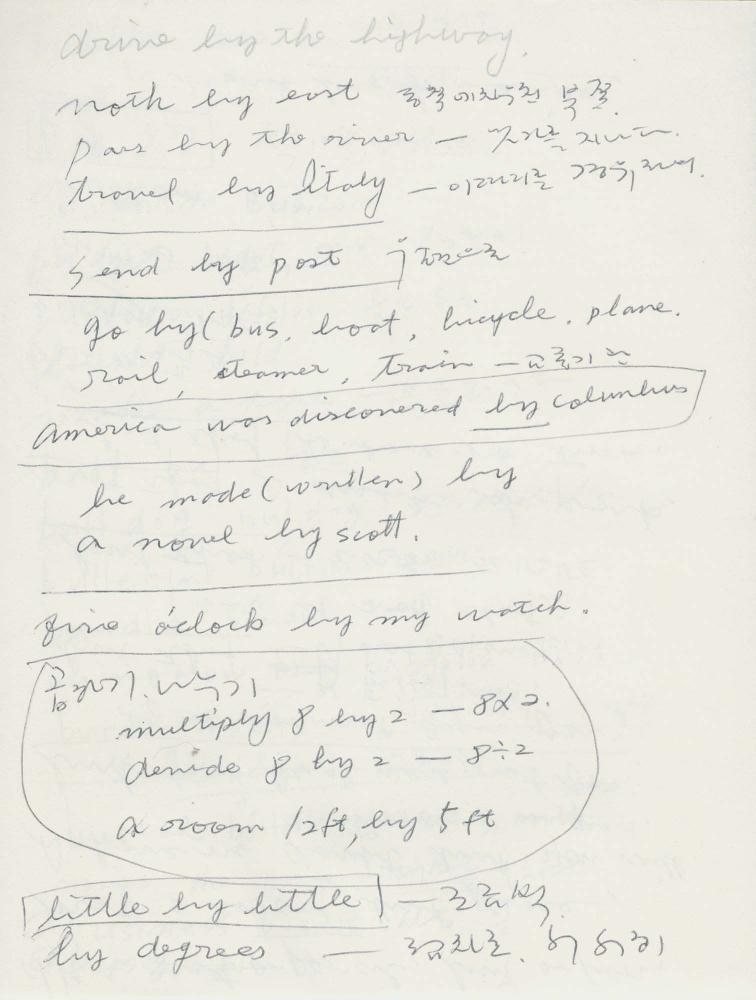 drive by the highway.
noth by east 동쪽에치우친 북쪽.
pass by the river — 냇가를 지나다.
travel by Italy — 이태리를 경위하여.
send by post 우편으로
go by( bus, boat, bicycle. plane.
rail, steamer, train — 교통기관
america was discovered by columbus
be made (written) by
a novel by scott.
five o'clock by my watch.
곱하기. 나누기
multiply 8 by 2 — 8×2.
devide 8 by 2 — 8÷2
a room 12ft, by 5 ft
little by little — 조금씩
by degrees — 점차로.